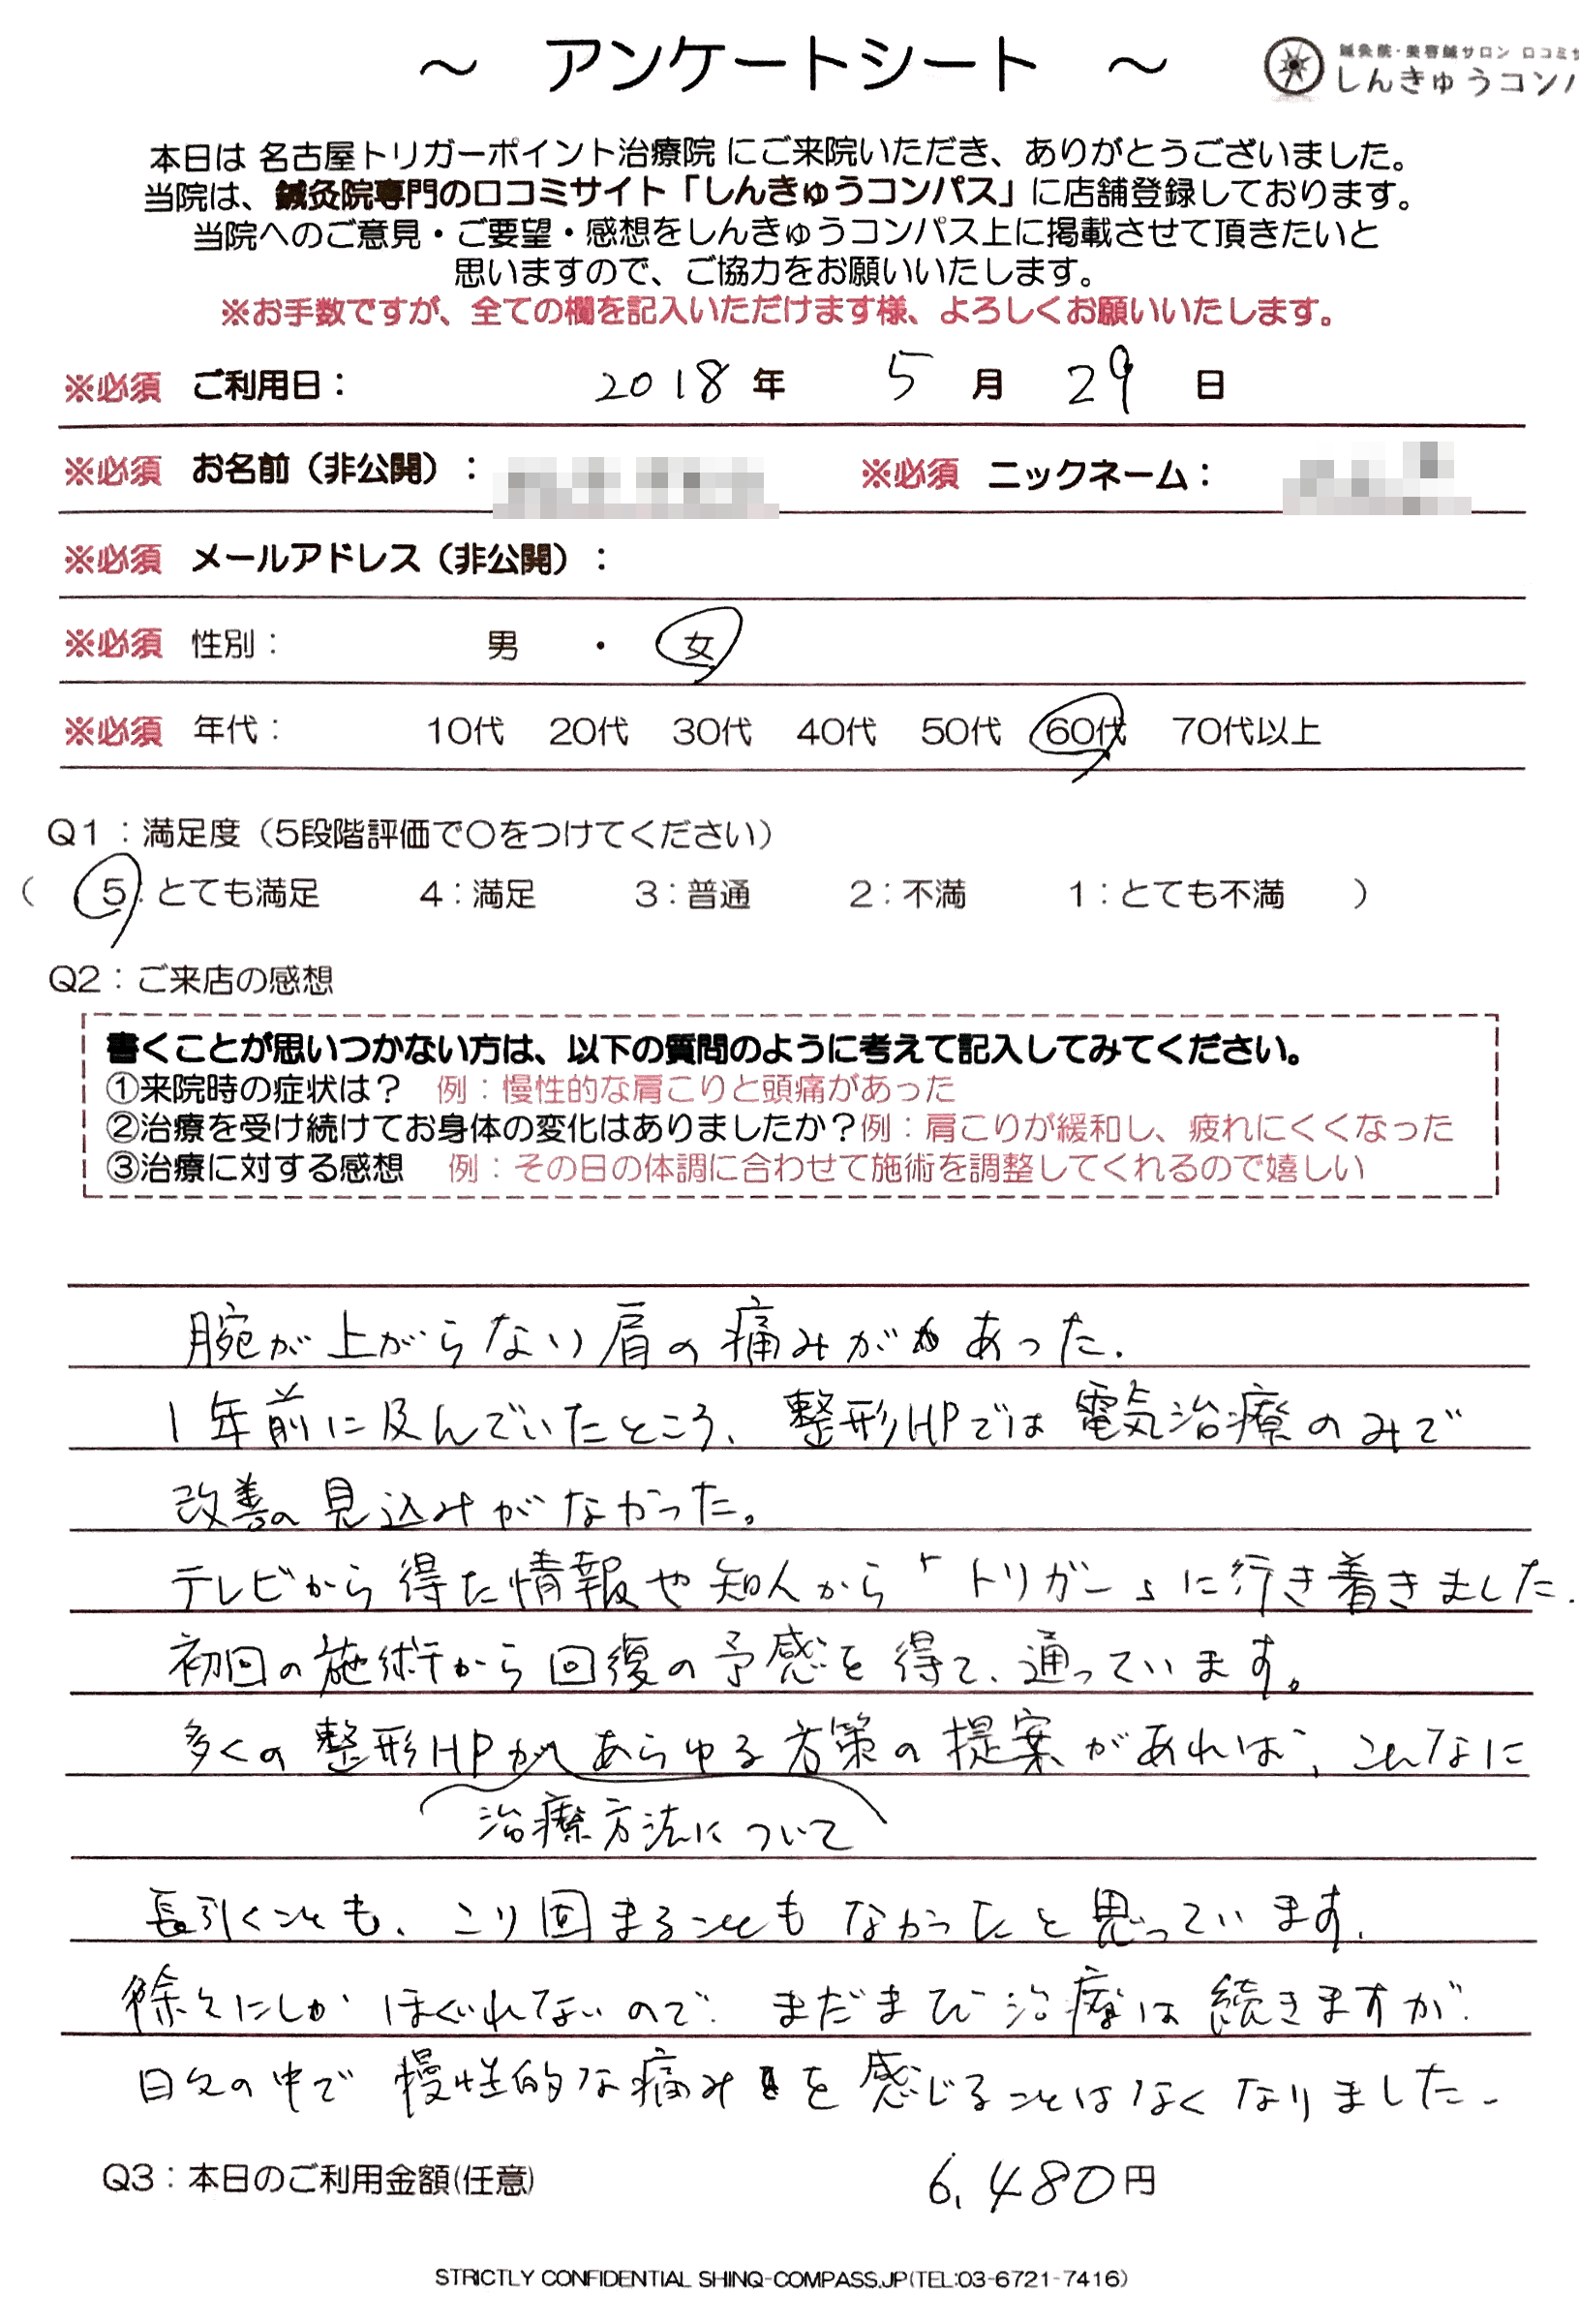 ～ アンケートシート ～
鍼灸院・美容鍼サロン 口コミサ
しんきゅうコンパ
本日は 名古屋トリガーポイント治療院 にご来院いただき、ありがとうございました。
当院は、鍼灸院専門の口コミサイト「しんきゅうコンパス」に店舗登録しております。
当院へのご意見・ご要望・感想をしんきゅうコンパス上に掲載させて頂きたいと
思いますので、ご協力をお願いいたします。
※お手数ですが、全ての欄を記入いただけます様、よろしくお願いいたします。
※必須 ご利用日： 2018 年 5 月 29 日
※必須 お名前（非公開）： ※必須 ニックネーム：
※必須 メールアドレス（非公開）：
※必須 性別： 男 ・ 女
※必須 年代： 10代 20代 30代 40代 50代 60代 70代以上
Q1：満足度（5段階評価で〇をつけてください）
（ 5：とても満足 4：満足 3：普通 2：不満 1：とても不満 ）
Q2：ご来店の感想
書くことが思いつかない方は、以下の質問のように考えて記入してみてください。
①来院時の症状は？ 例：慢性的な肩こりと頭痛があった
②治療を受け続けてお身体の変化はありましたか？例：肩こりが緩和し、疲れにくくなった
③治療に対する感想 例：その日の体調に合わせて施術を調整してくれるので嬉しい
腕が上がらない肩の痛みがあった.
1年前に及んでいたところ、整形HPでは電気治療のみで
改善の見込みがなかった。
テレビから得た情報や知人から「トリガー」に行き着きました.
初回の施術から回復の予感を得て、通っています。
多くの整形HPがあらゆる方策の提案があれば、こんなに
治療方法について
長引くことも、こり固まることもなかったと思っています.
徐々にしかほぐれないので、まだまだ治療は続きますが、
日々の中で慢性的な痛みを感じることはなくなりました.
Q3：本日のご利用金額(任意) 6,480円
STRICTLY CONFIDENTIAL SHINQ-COMPASS.JP(TEL:03-6721-7416)